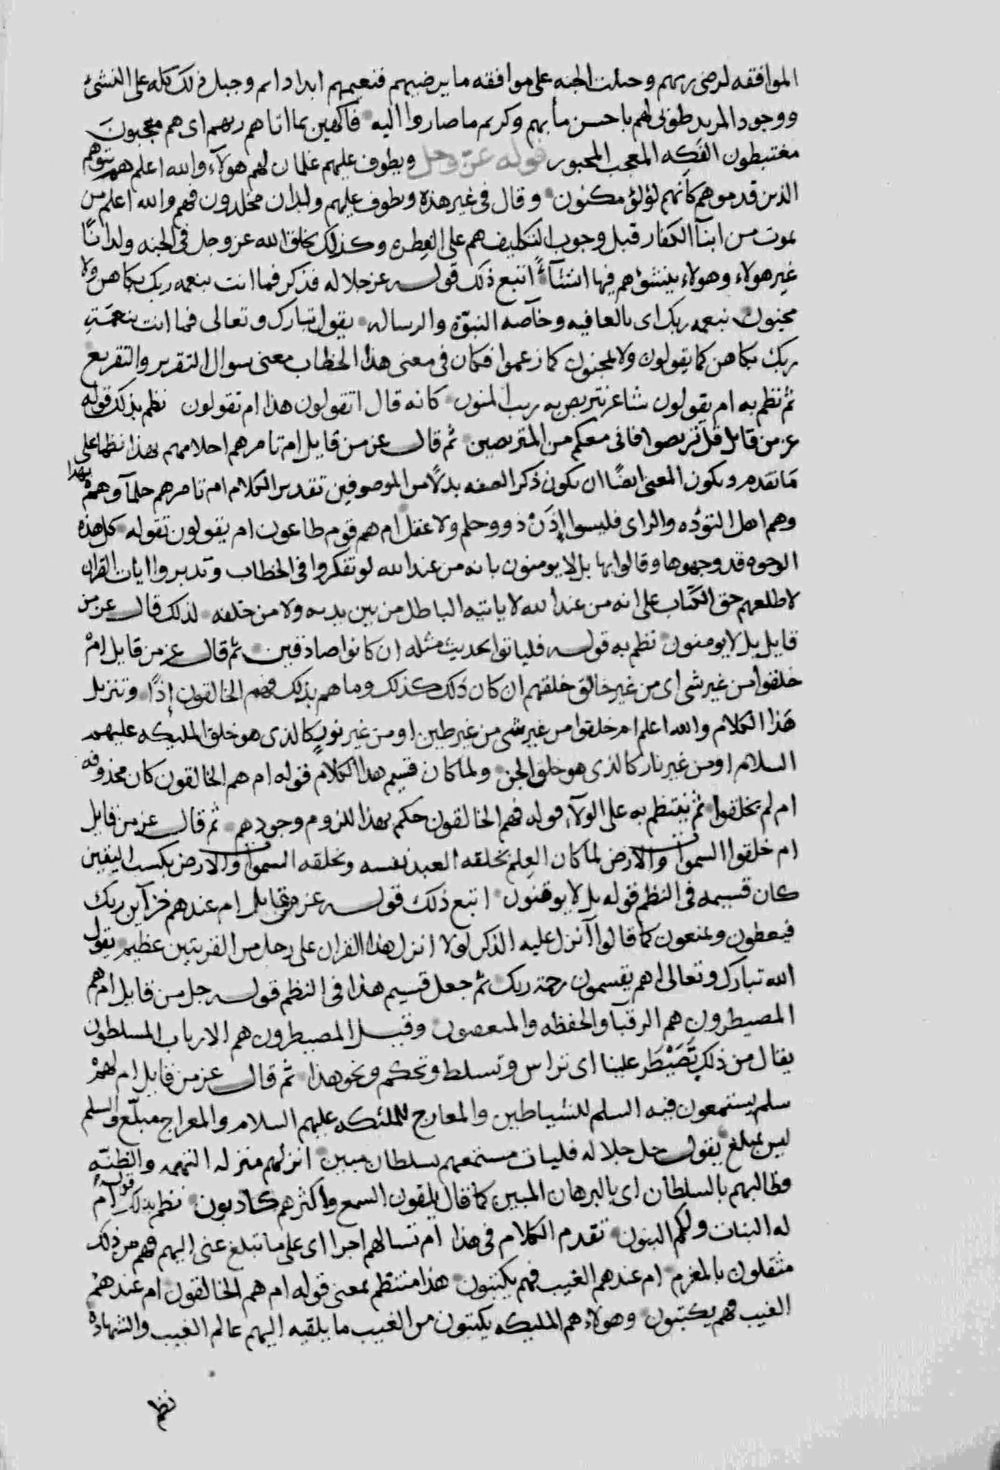 الموافقه لرضى ربهم وجبلت الجنه على موافقه ما يرضيهم فنعيمهم ابدا دائم وجبل ذلك كله على النشئ
ووجود المريد طوبى لهم باحسن مآبهم وكريم ما صاروا اليه فاكهين بما اتاهم ربهم اى هم معجبون
مغتبطون الفكه المعجب المحبور قوله عز وجل ويطوف عليهم غلمان لهم هولاء والله اعلم هم بنوهم
الذين قدموهم كانهم لؤلؤ مكنون وقال فى غير هذه ويطوف عليهم ولدان مخلدون فهم والله اعلم من
يموت من ابنآ الكفار قبل وجوب التكليف هم على الفطره وكذلك يخلق الله عز وجل فى الجنه ولدانا
غير هولاء وهولاء ينشئهم فيها انشآء اتبع ذلك قوله عز جلاله فذكر فما انت بنعمه ربك بكاهن ولا
مجنون بنعمه ربك اى بالعافيه وخآصه النبوّه والرساله يقول تبارك وتعالى فما انت بنعمة
ربك بكاهن كما يقولون ولا بمجنون كما زعموا فكان فى معنى هذا الخطاب معنى سوال التقرير والتقريع
ثم نظم به ام يقولون شاعر نتربص به ريب المنون كانه قال اتقولون هذا ام تقولون نظم بذلك قوله
عز من قايل قل تربصوا فانى معكم من المتربصين ثم قال عز من قايل ام تامرهم احلامهم بهذا نظما على
ما تقدم ويكون المعنى ايضا ان يكون ذكر الصفه بدلا من الموصوفين تقدير الكلام ام تامرهم حلمآوهم بهذا
وهم اهل التوده والراى فليسوا اذن ذوو حلم ولا عقل ام هم قوم طاغون ام يقولون تقوله كل هذه
الوجوه قد وجهوها وقالوا بها بل لا يومنون بانه من عند الله لو تفكروا فى الخطاب وتدبروا ايات القران
لاطلعهم حق الكتاب على انه من عند الله لا ياتيه الباطل من بين يديه ولا من خلفه لذلك قال عز من
قايل بل لا يومنون نظم به قوله فلياتوا بحديث مثله ان كانوا صادقين ثم قال عز من قايل ام
خلقوا من غير شى اى من غير خالق خلقهم ان كان ذلك كذلك وما هم بذلك فهم الخالقون اذا وتنزيل
هذا الكلام والله اعلم ام خلقوا من غير شى من غير طين او من غير نور كالذى هو خلق المليكه عليهم
السلام او من غير نار كالذى هو خلق الجن ولما كان قسيم هذا الكلام قوله ام هم الخالقون كان محذوفه
ام لم يخلقوا ثم ينتظم به على الولآء قوله فهم الخالقون حكم بهذا للزوم وجودهم ثم قال عز من قايل
ام خلقوا السموات والارض لما كان العلم بخلقه العبد نفسه وبخلقه السموات والارض يكسب اليقين
كان قسيمه فى النظم قوله بل لا يوقنون اتبع ذلك قوله عز من قايل ام عندهم خزآين ربك
فيعطون ويمنعون كما قالوا آنزل عليه الذكر لولا انزل هذا القران على رجل من القريتين عظيم يقول
الله تبارك وتعالى اهم يقسمون رحمة ربك ثم جعل قسيم هذا فى النظم قوله جل من قايل ام هم
المصيطرون هم الرقبآ والحفظه وقيل المصيطرون هم الارباب المسلطون
يقال من ذلك تصيطر علينا اى تراس وتسلط وتحكم ونحو هذا ثم قال عز من قايل ام لهم
سلم يستمعون فيه السلم للشياطين والمعارج للملئكه عليهم السلام والمعراج مبلّغ والسلم
ليس بمبلغ يقول جل جلاله فليات مستمعهم بسلطان مبين انزلهم منزله التهمه والظنّه
وطالبهم بالسلطان اى بالبرهان المبين كما قال يلقون السمع واكثرهم كاذبون نظم بذلك قوله ام
له البنات ولكم البنون تقدم الكلام فى هذا ام تسالهم اجرا اى على ما تبلغ عنى اليهم فهم من ذلك
مثقلون بالمغرم ام عندهم الغيب فهم يكتبون هذا منتظم بمعنى قوله ام هم الخالقون ام عندهم
الغيب فهم يكتبون وهولاء هم المليكه يكتبون من الغيب ما يلقيه اليهم عالم الغيب والشهاده
نظم